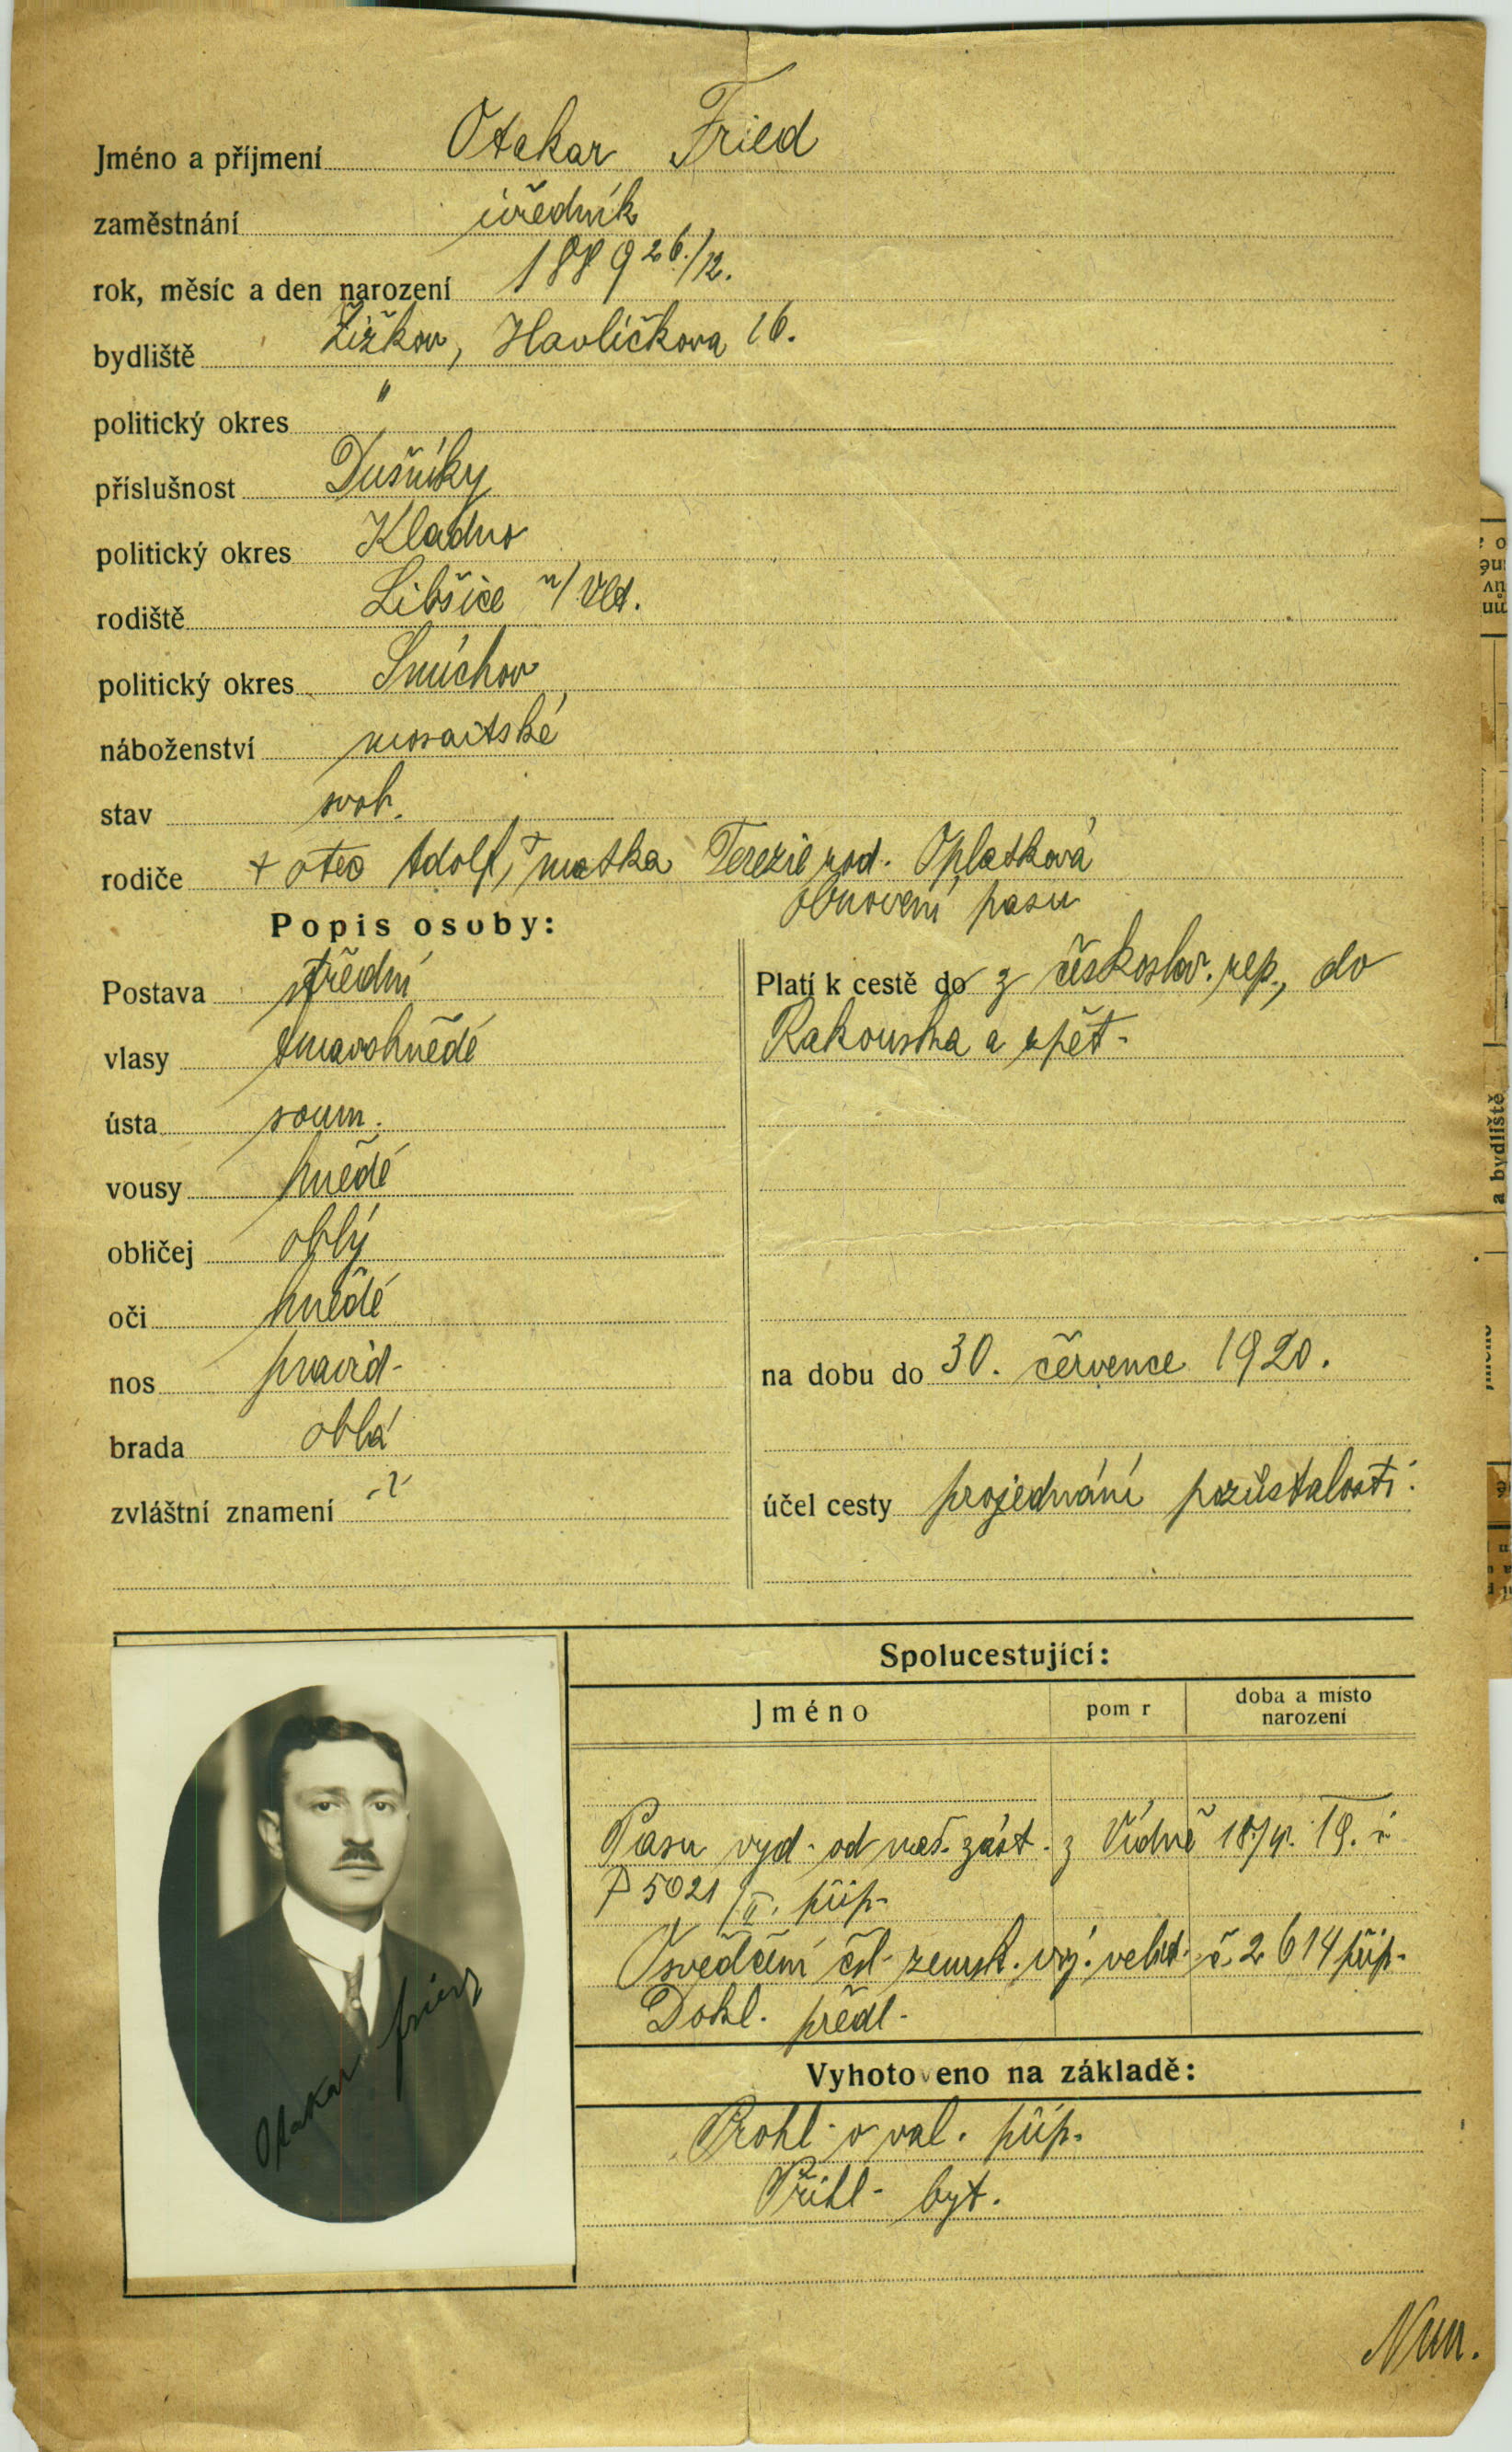 Jméno a příjmení Otakar Fried
zaměstnání úředník
rok, měsíc a den narození 1889 26./12.
bydliště Žižkov, Havlíčkova 16.
politický okres "
příslušnost Dušníky
politický okres Kladno
rodiště Libšice n/Vlt.
politický okres Smíchov
náboženství mosaitské
stav svob.
rodiče + otec Adolf, + matka Terezie rod. Oplatková
obnovení pasu
Popis osoby:
Postava střední
vlasy tmavohnědé
ústa soum.
vousy hnědé
obličej oblý
oči hnědé
nos pravid.
brada oblá
zvláštní znamení
Platí k cestě do z českoslov. rep., do
Rakouska a zpět.
na dobu do 30. července 1920.
účel cesty projednání pozůstalosti.
Spolucestující:
Jméno pom r doba a místo narození
Pasu vyd. od naš. zást. z Vídně 19.
P 5021/II. přip.
Osvědčení čsl. zemsk. voj. velit. č. 2614 přip.
Dokl. předl.
Vyhotoveno na základě:
Prohl. o val. přip.
Přihl. byt.
Otakar Fried
Nun.
a bydliště
jméno